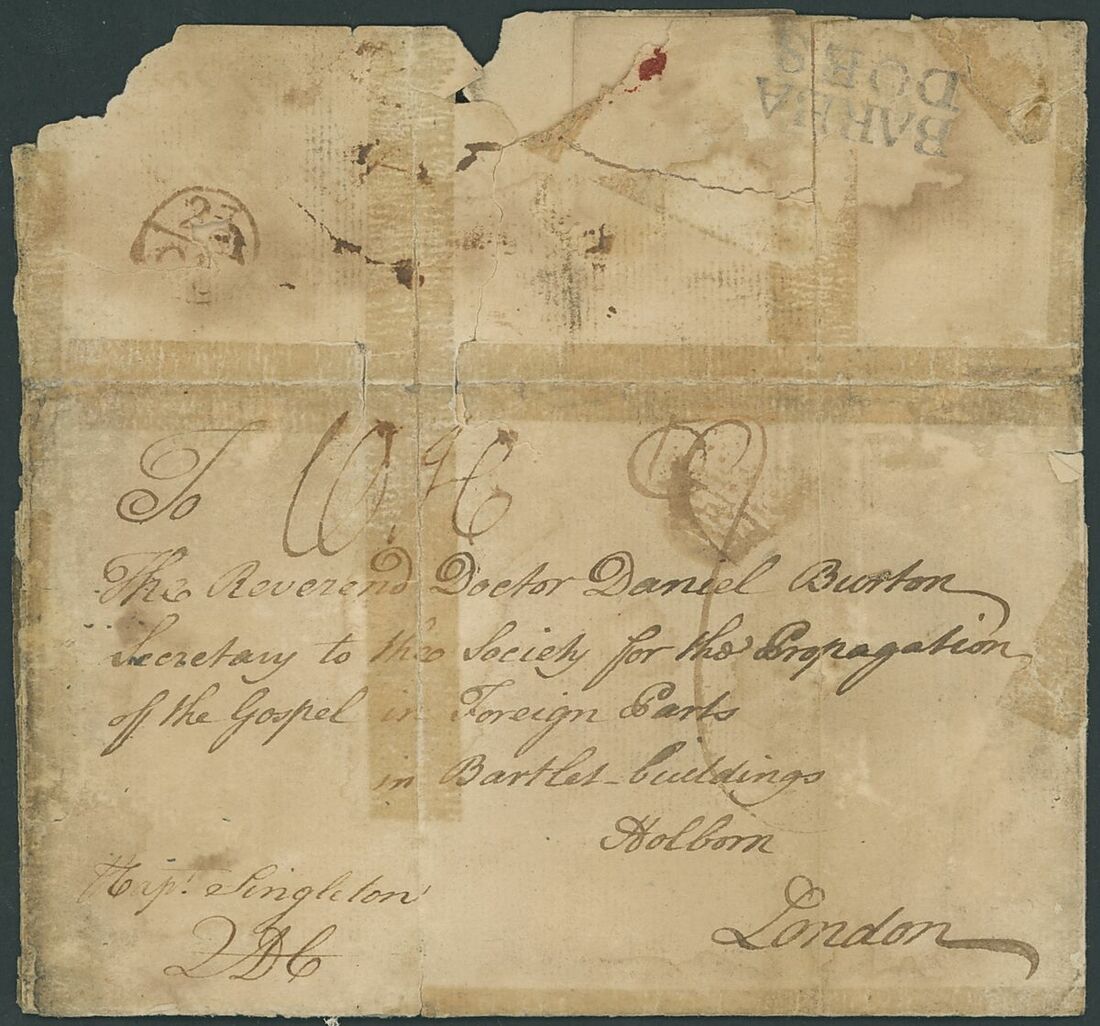 BARBA
DOES
27
To
The Reverend Doctor Daniel Burton
Secretary to the Society for the Propagation
off the Gospel in Foreign Parts
in Bartlet-buildings
Holborn
London
Capt. Singleton
QDC